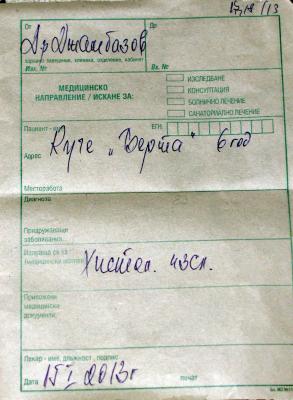 От
Др.
Д-р Джамбазов
здравно заведение, клиника, отделение, кабинет
Изх. №
Вх. №
МЕДИЦИНСКО
НАПРАВЛЕНИЕ / ИСКАНЕ ЗА:
ИЗСЛЕДВАНЕ
КОНСУЛТАЦИЯ
БОЛНИЧНО ЛЕЧЕНИЕ
САНАТОРИАЛНО ЛЕЧЕНИЕ
Пациент -
ЕГН:
Куче "Берта" 6 год
Адрес
Месторабота
Диагноза
Придружаващи
заболявания
Изпраща се за
Хистол. изсл.
Приложени
медицински
документи:
Лекар - име, длъжност, подпис
Дата 15 I 2013г
печат